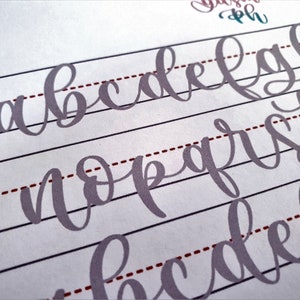 ph
abcdefg
nopqrs
abcde